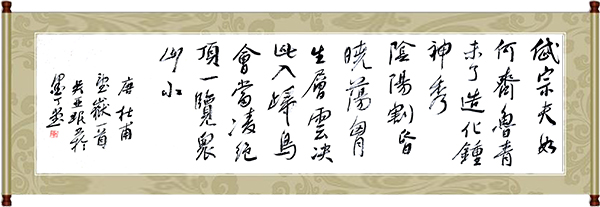 岱宗夫如
何齊魯青
未了造化鍾
神秀
陰陽割昏
曉蕩胸
生層雲決
眥入歸鳥
會當凌絕
頂一覽衆
山小
唐杜甫
望嶽首